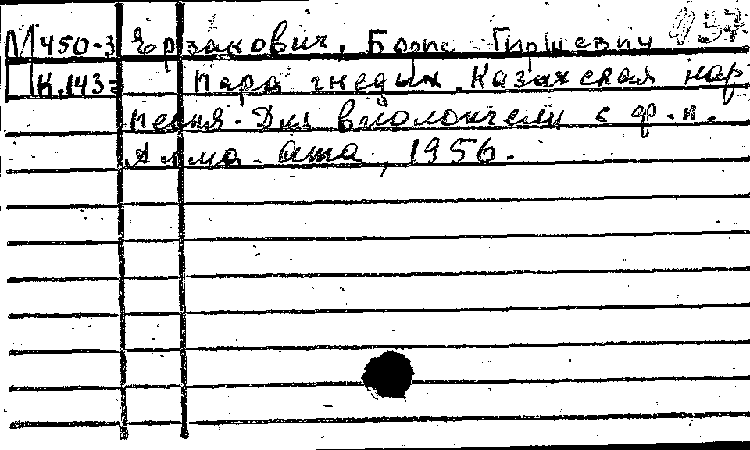 М 450-3 Ерзакович, Борис Гиршевич 937
К.143 Пара гнедых. Казахская нар
песня. Для виолончели с ф.-п.
Алма-Ата, 1956.